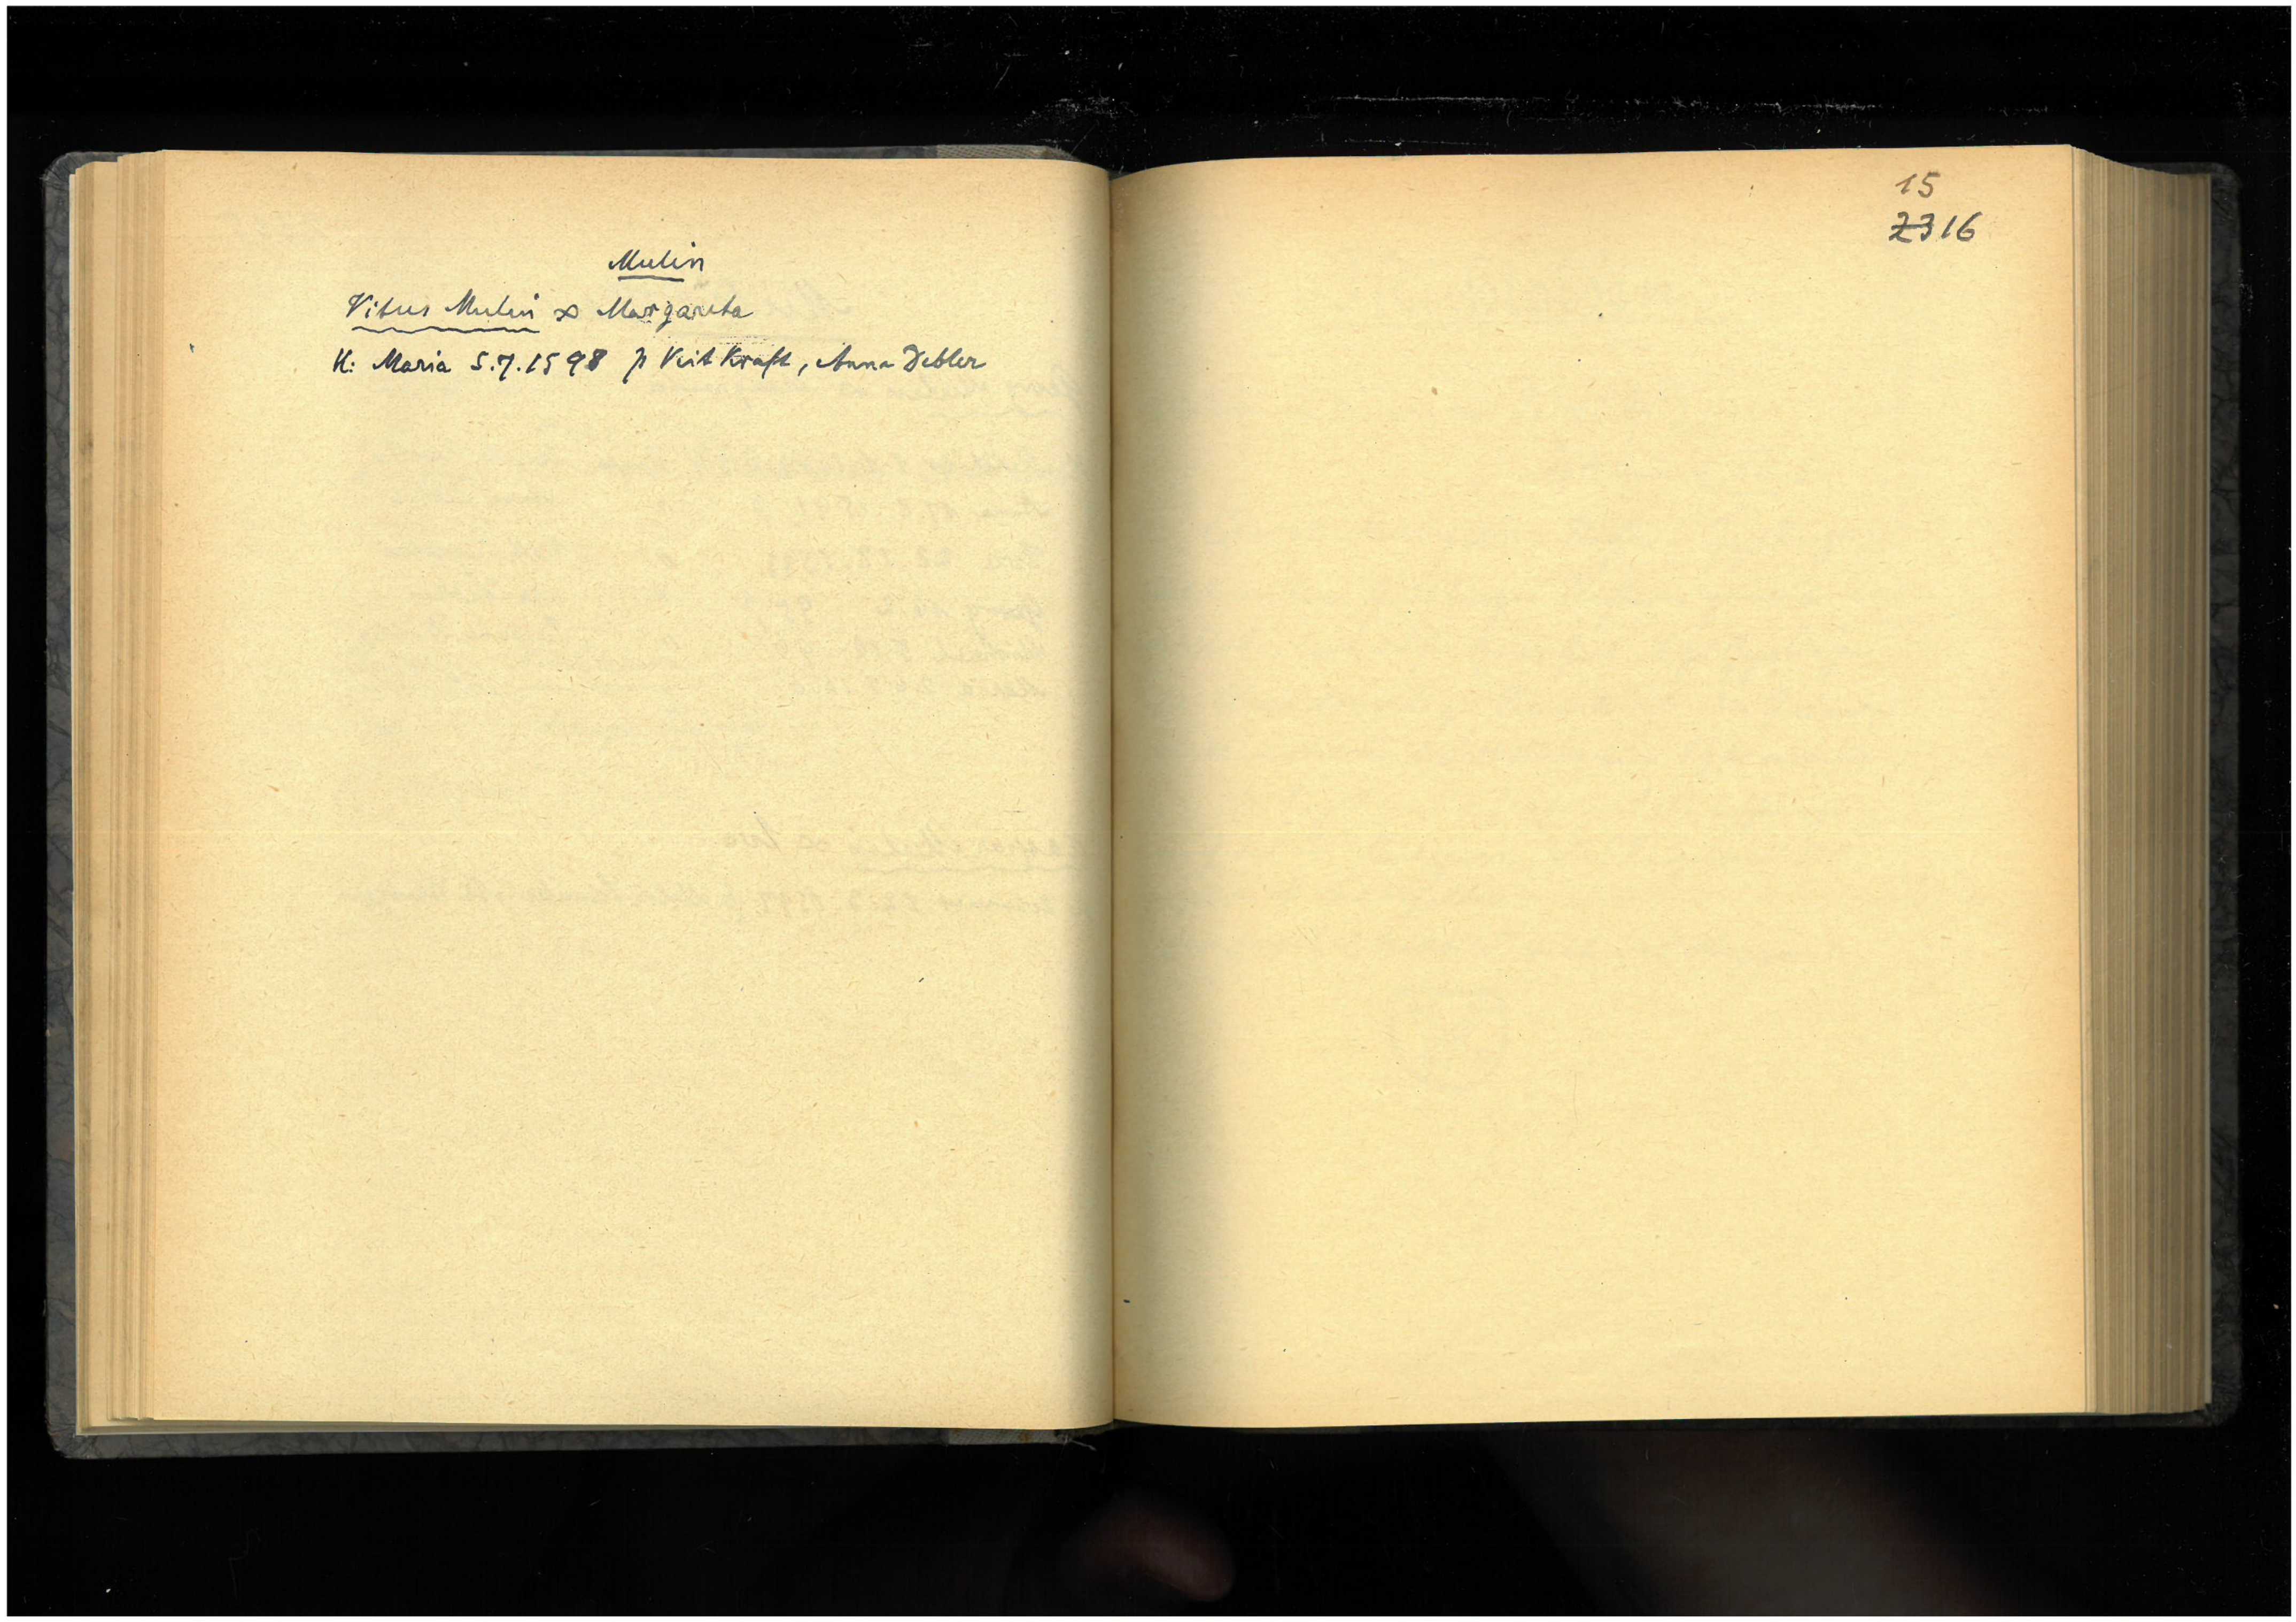 Mulin
Vitus Mulin ∞ Margareta
K: Maria 5.7.1598 p Veit Kraft, Anna Debler
15
23 16